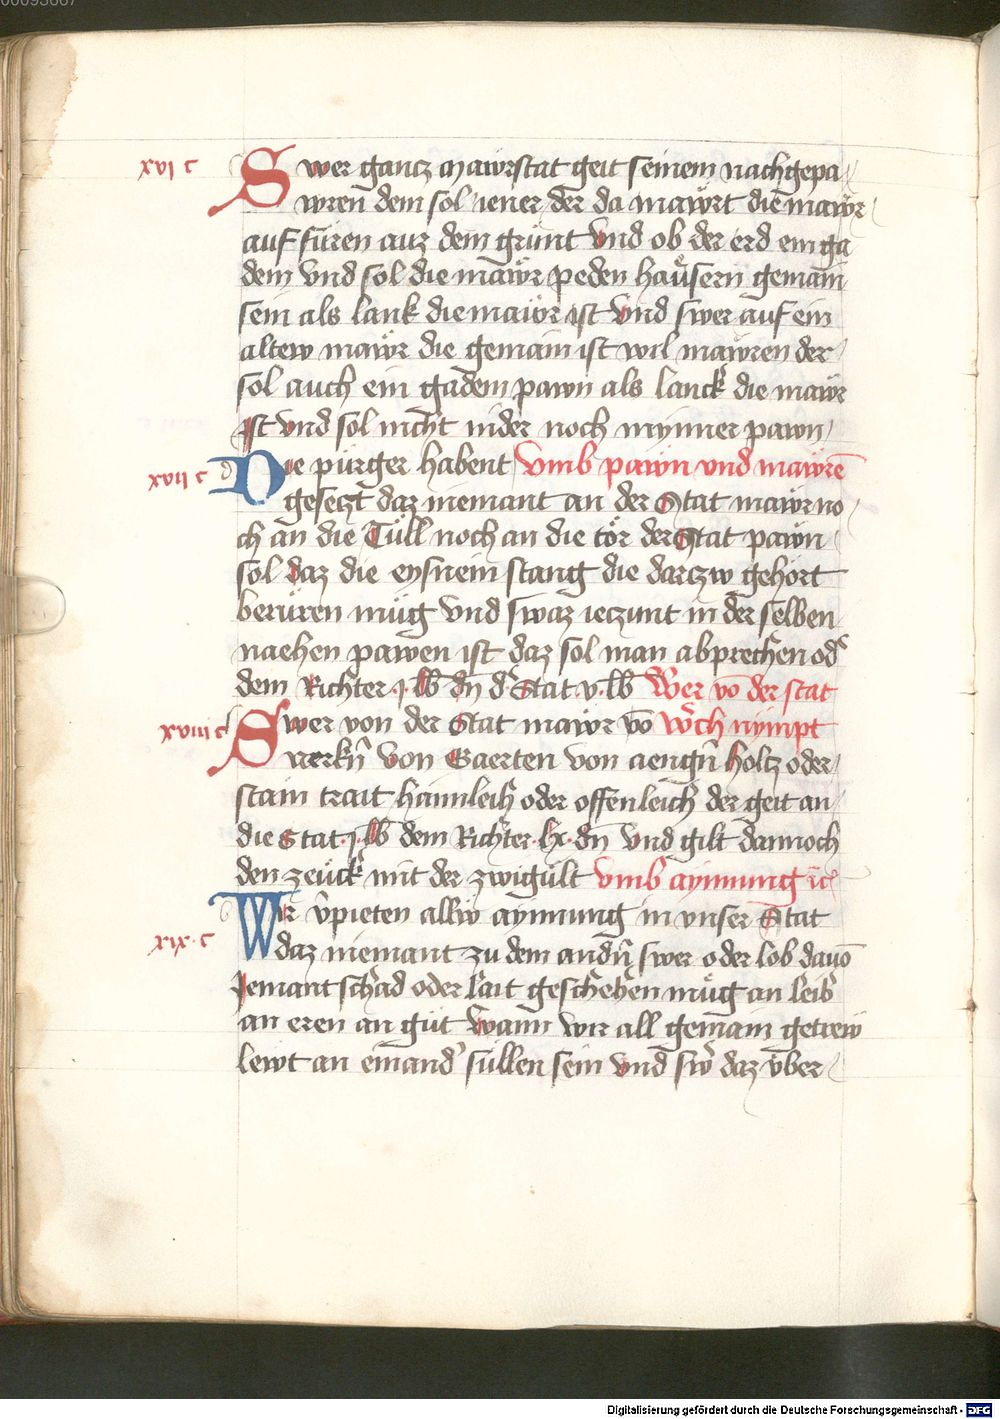 00093667
xvi c
Swer gancz mawrstat geit seinem nachgepa
wren dem sol iener der da mawrt die mawr
auf furen auz dem grunt vnd ob der erd ein ga
dem vnd sol die mawr peden hawsern gemain
sein als lank die mawr ist vnd swer auf ein
altew mawr die gemain ist wil mawren der
sol auch ein gadem pawn als lanck die mawr
ist vnd sol nicht nider noch mynner pawn
xvii c
Die purger habent vmb pawn vnd mawrē
gesetzt daz niemant an der Stat mawr no
ch an die Tüll noch an die tör der Stat pawn
sol daz die eysnein stang die darczw gehört
beruren müg vnd swaz ieczunt in der selben
naehen pawen ist daz sol man abprechen od
dem Richter .j. lb dn̄ d Stat .v. lb Wer vō der stat
xviii c
Swer von der Stat mawr vō wch nympt
werkn̄ von Gaerten von aengn̄ holtz oder
stain trait haimleich oder offenleich der geit an
die Stat .j. lb dem Richter .lx. dn̄ vnd gilt dannoch
den zeuck mit der zwigult vmb aynnung ꝛc
xix c
Wir v̄pieten allw aynnung in vnser Stat
daz niemant zu dem andn̄ swer oder lob dauō
Jemant schad oder lait geschehen müg an leib
an eren an gut wann wir all gemain getrew
lewt an einand sullen sein vnd sw daz vber
Digitalisierung gefördert durch die Deutsche Forschungsgemeinschaft - DFG